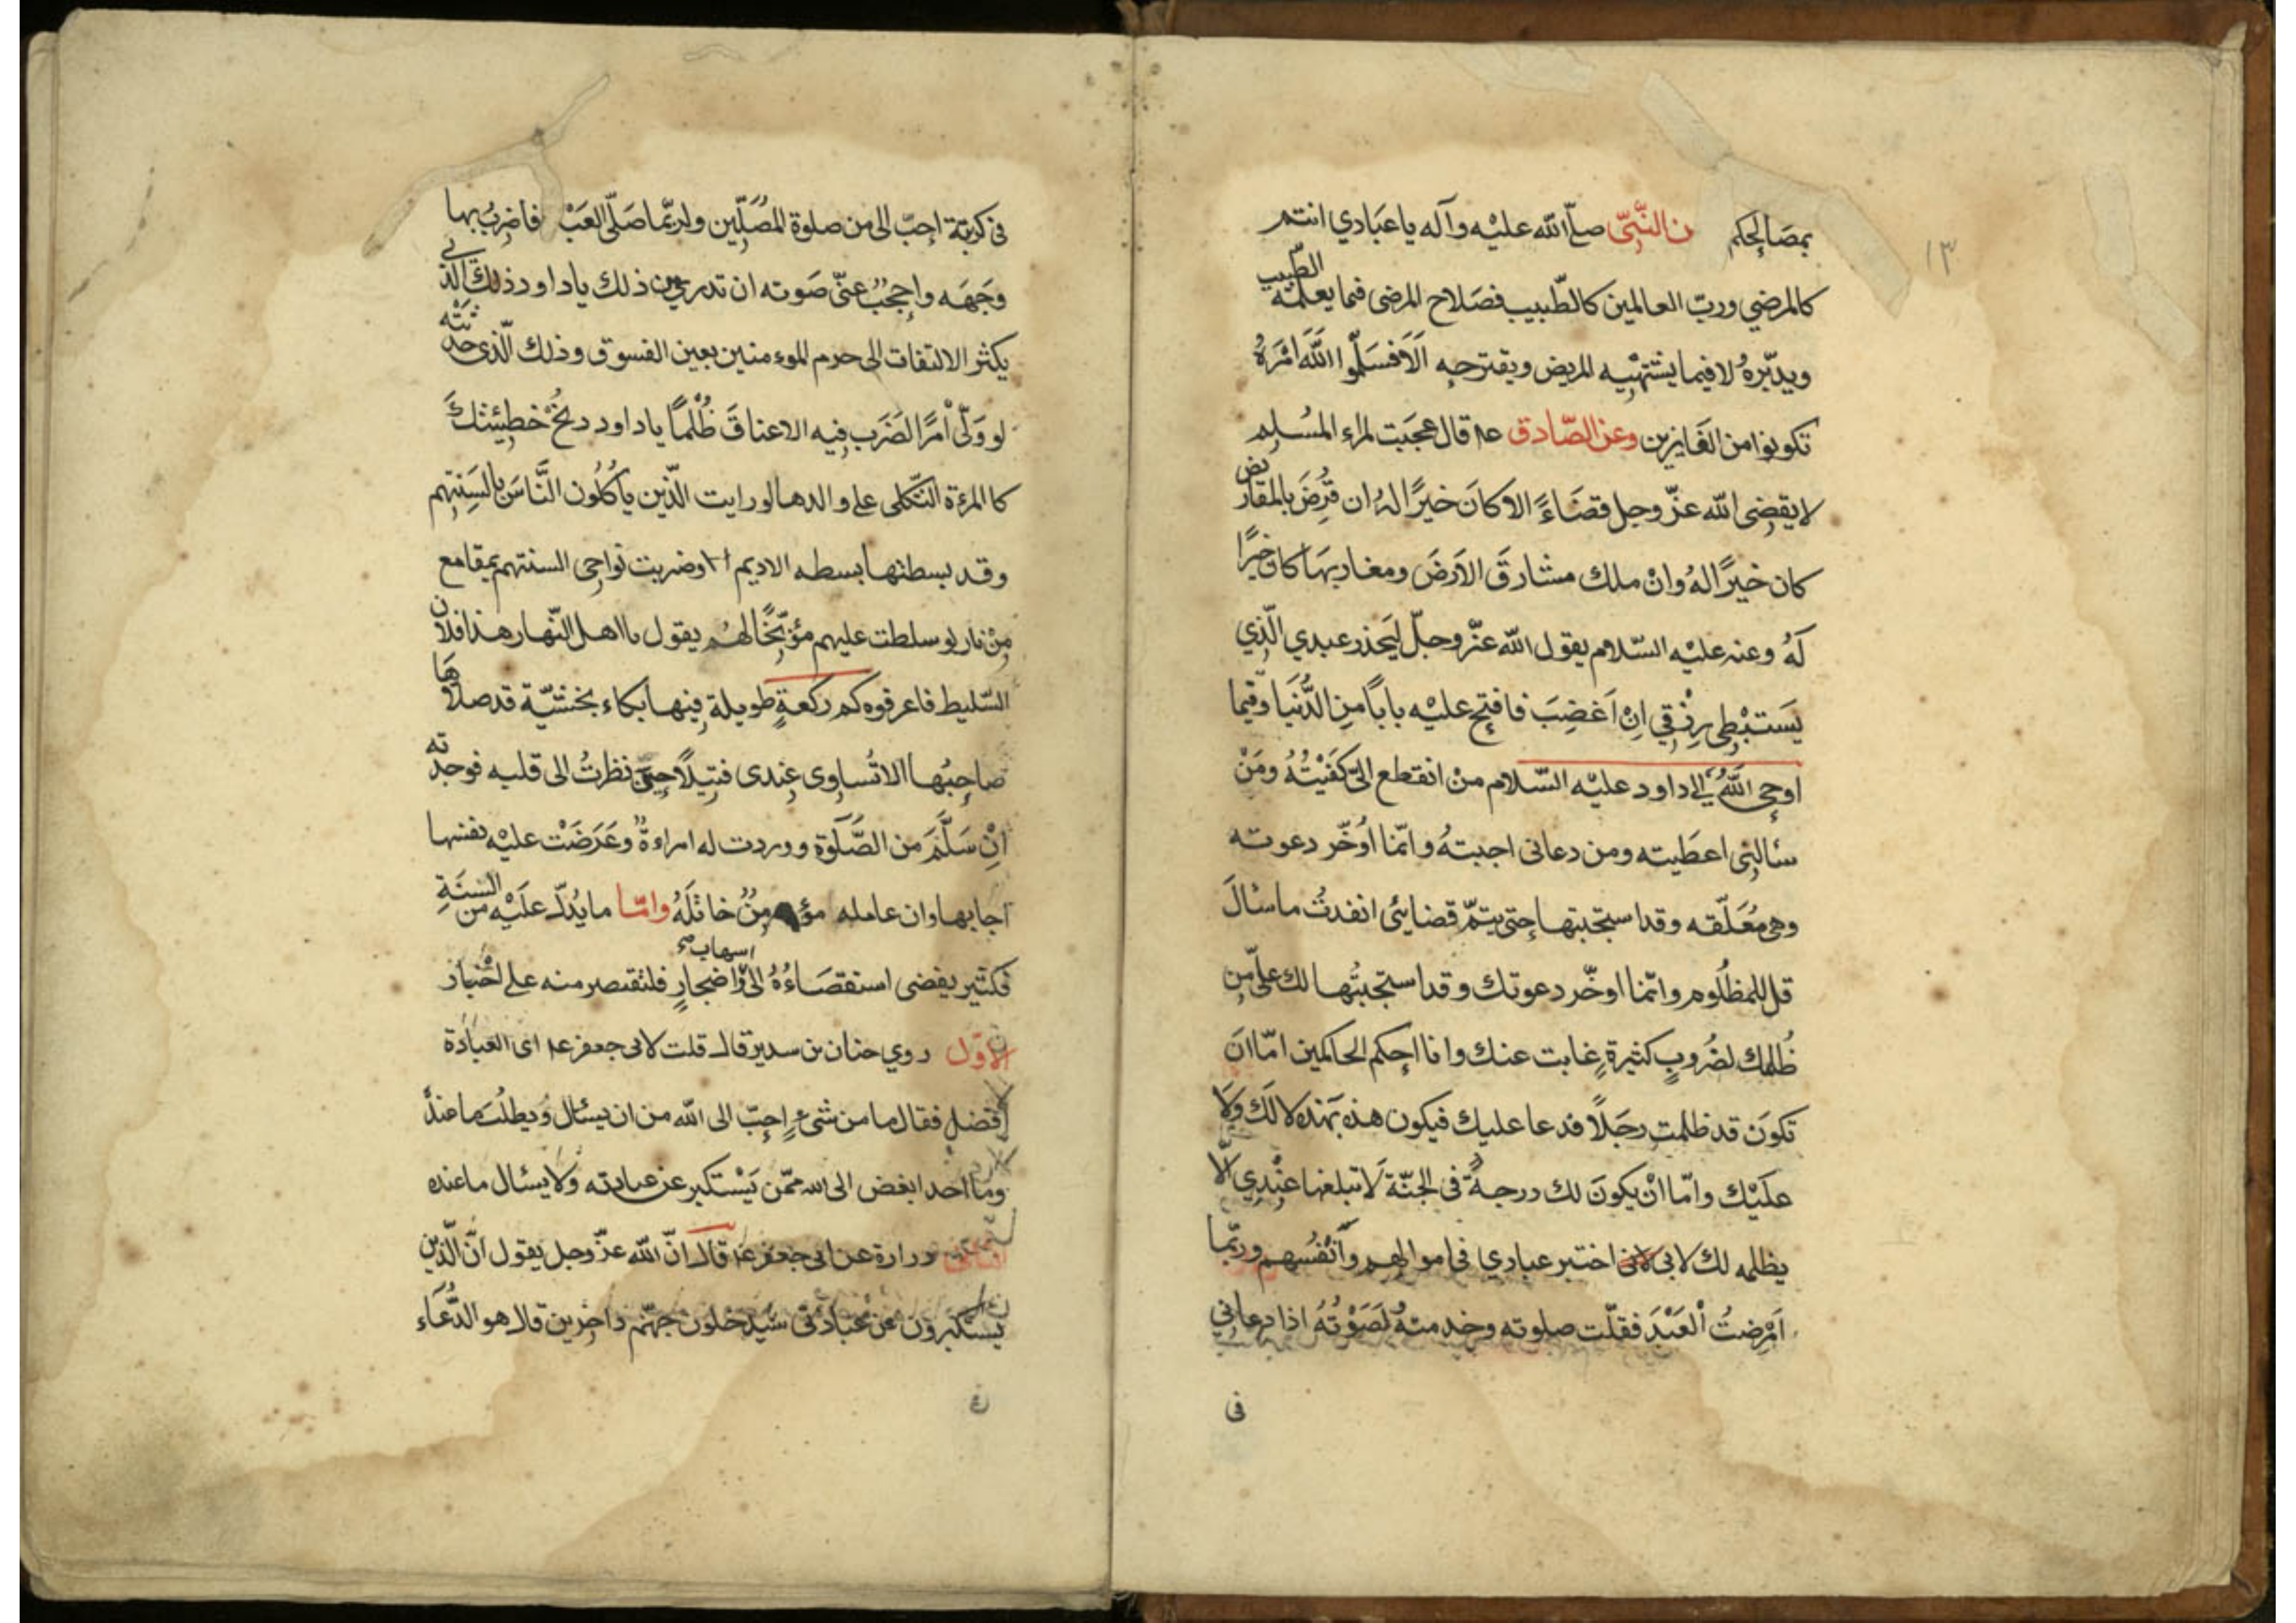 ١٣
بمصالحكم ن النَّبِيّ صلّ الله عليْه وآله يا عبَادي انتم
كالمرضي وربّ العالمين كالطّبيب فصَلاح المرضى فيما يعلمه الطّبيب
ويدبّرهُ لا فيما يشتهْيه المريض ويقترحه اَلَا فسَلّموا اللّٰهَ اَمْرَهُ
تكونوا من الفَايزين وعن الصّادق عـ قال عجبَت لمرء المسُلم
لا يقضِى الله عزّ وجل قضَاءً الا كانَ خيرًا لهُ ان قُرِضَ بالمقاريض
كان خيرًا لهُ وانْ ملك مشارقَ الاَرضَ ومغاربهَا كان خيرًا
لَهُ وعنه عليْه السّلام يقول الله عزّ وجلّ ليَحذر عبدي الّذِي
يَستبْطِي رِزْقي اِنْ اَغضِبَ فافتح عليْه باباً مِن الدُّنيَا وفيما
اوحى اللّٰهُ الى داود عليْه السّلام منْ انقطع الىّ كَفَيْتُهُ ومَنْ
سألنِى اعطَيته ومن دعانى اجبتهُ وانّما اُوَخّر دعوته
وهى مُعَلّقه وقد استجبتها حتى يتمّ قضايئ انفدتُ ما سئالَ
قل للمظلُوم وانّما اوخّر دعوتك وقد استجبتُها لك علىّ من
ظُلمك لضُروبٍ كثيرةٍ غابت عنك وانا احكم الحاكمين امّا انَ
تكونَ قد ظلمت رجَلاً فدعا عليك فيكون هذه بهَذه لا لَك وَلَا
علَيْك وامّا انْ يكونَ لك درجةً فى الجنّة لَا تبلغها عِنْدِي الّا
بظلمه لك لانى اختبر عبادي في اموالهم وَاَنفُسهم وربّما
اَمْرضتُ العَبْدَ فقلّت صلوته وخدمتهُ لصَوْتُهُ اذا دعانِي
فى
فى كربته احبّ الى من صلوة المُصَلّين ولربّما صَلّى العَبْ فاضرِبُ بها
وجَهَه واحجبُ عنّى صَوته ان تدرى من ذلك يا داود ذلك الّذى
يكثر الالتفات الى حرم الموءمنين بعين الفسوق وذلك الّذى حدثته
لو وَلّى اْمرًا لضَرَب فِيه الاعناقَ ظُلْماً يا داود دنُحْ خطِيئتكَ
كا المرءة الثّكلى على والدها لو رايت الذّين يأكُلُون النَّاسَ بالسِنَتِهم
وقد بسطتها بسطه الاديم وضربت نواحِى السنتهم بمقامع
مِنْ نار لو سلطت عليهم مؤبّخًا لهُم يقول يا اهل النّهار هذا فلان
السّليط فاعرفوه كم ركعةٍ طويلة فِيها بكاء بخشيّة قد صلاهَا
صاحبُها لا تُساوِى عِندى فتيلاً حتى نظرتُ الى قلبه فوجدته
انِْ سَلَّمَ من الصَّلَوة ووردت له امراءةُ وعَرَضَتْ عليْه نفسها
اجابها وان عامله مؤمِنُ خاتلَهُ وامّا ما يُدلّ علَيْه من السنَةِ
فكثير يفضى استقصَاءُهُ الى اسهاب وّاضجارٍ فلنقتصر منه على اخْبار
الاوّل روي حنان بن سدير قال قلت لابى جعفر عـ اى العبَادة
افضل فقال ما من شىءٍ احِبّ الى الله من ان يسئال ويطلُبَ ما عندهُ
وما احد ابغض الى الله ممّن يَسْتكبر عن عبادته ولا يسئال ما عنده
الثانى زرارة عن ابى جعفر عـ قال انّ الله عزّ وجل يقول انَّ الّذين
يستكبرون عَن عبادتى سَيَدخلون جهنّم داخرين قال هو الدُّعَاء